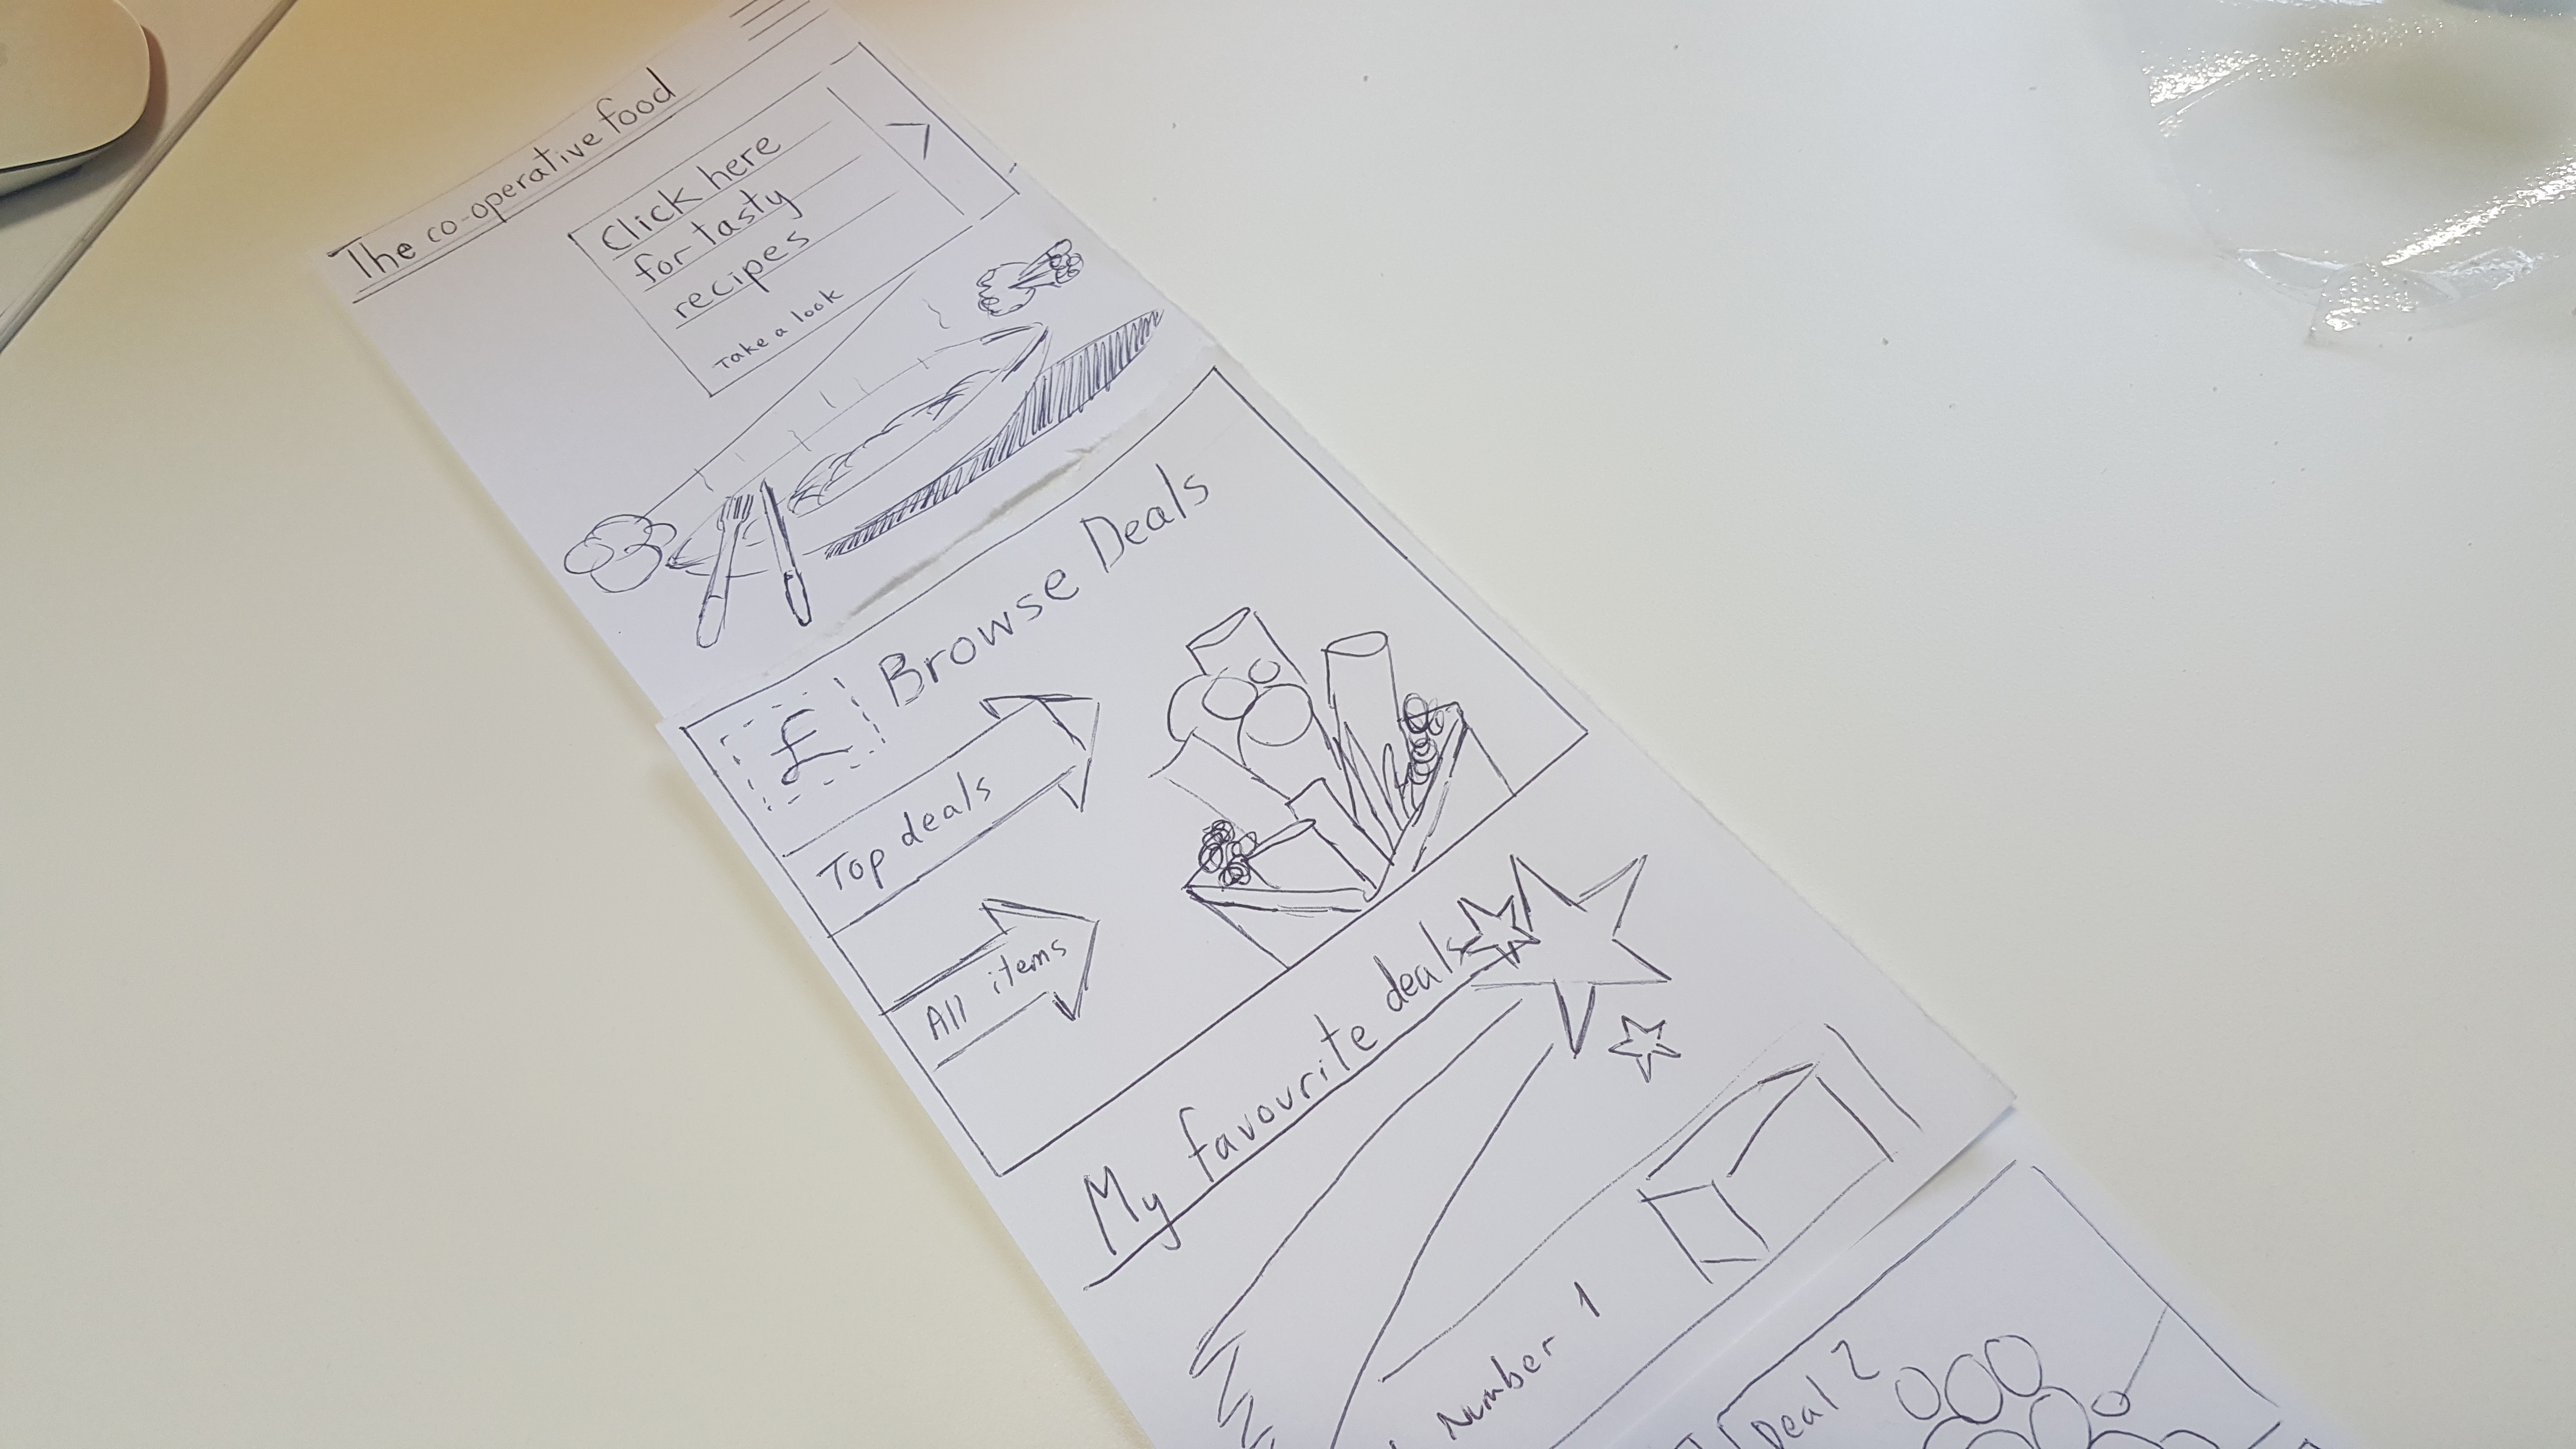 The co-operative food
Click here
for tasty
recipes
Take a look
£ Browse Deals
Top deals
All items
My favourite deals
Number 1
Deal 2